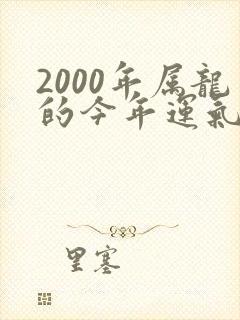 2000年属龍
的今年運氣
里塞